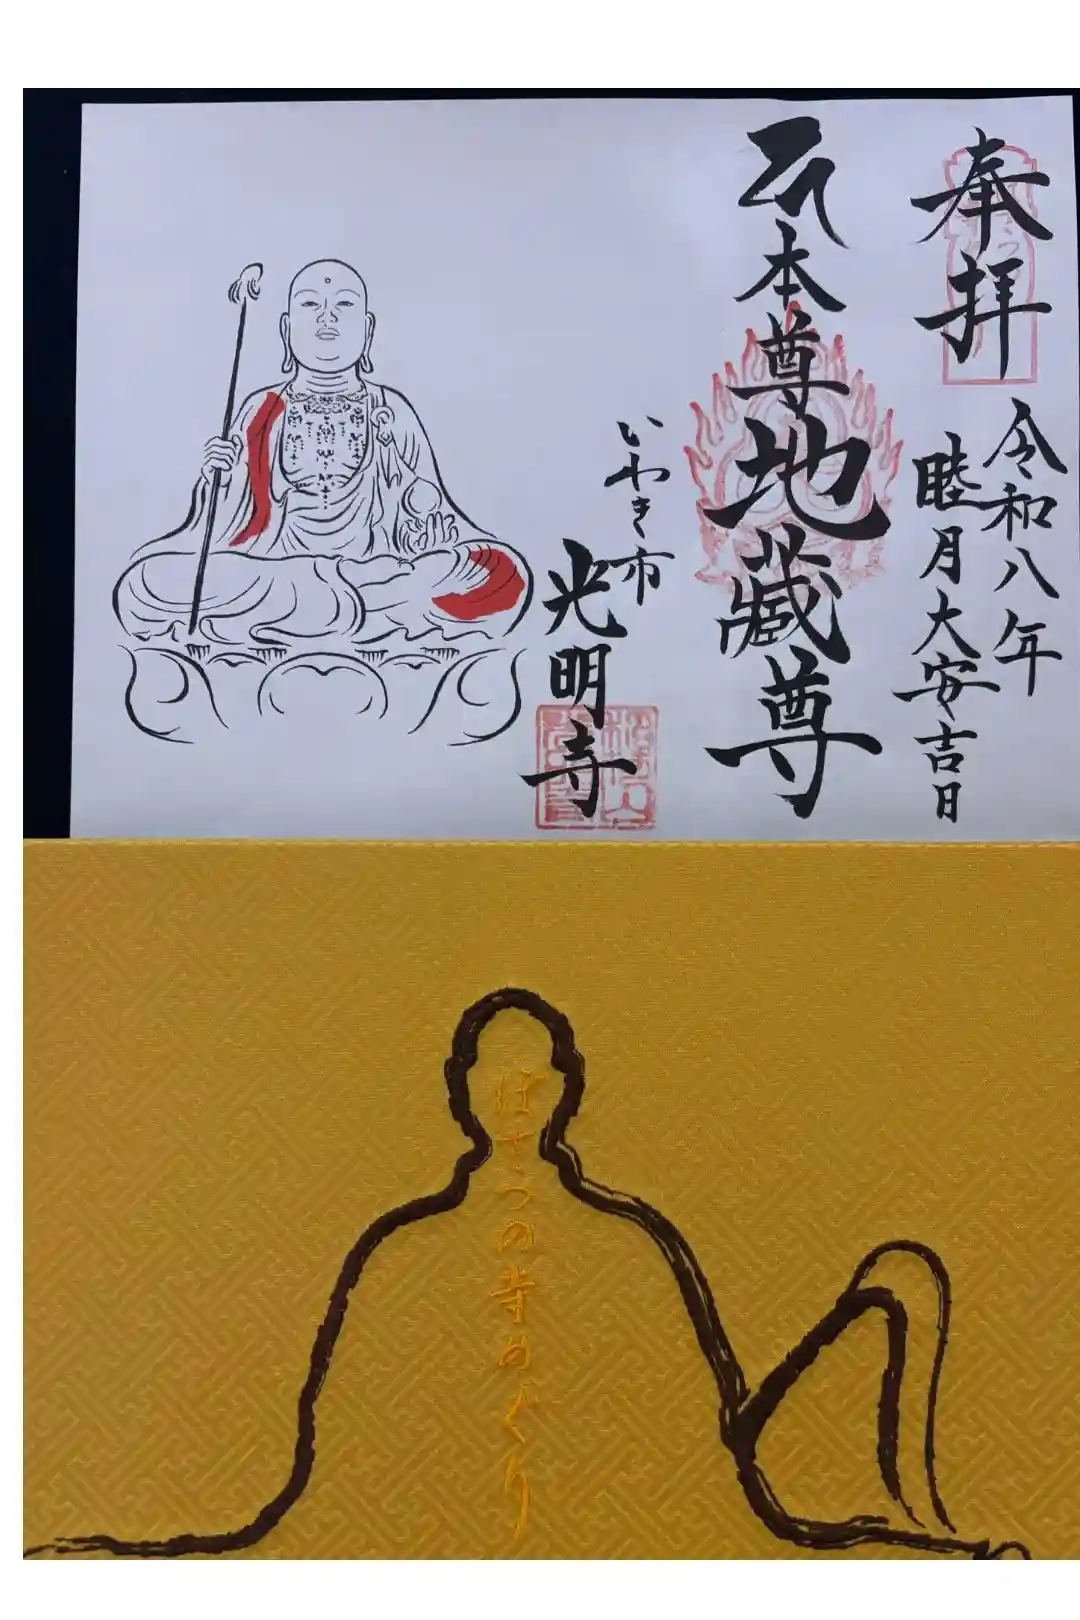 奉拝
令和八年
睦月大安吉日
本尊地蔵尊
いわき市
光明寺
ぼさつの寺めぐり